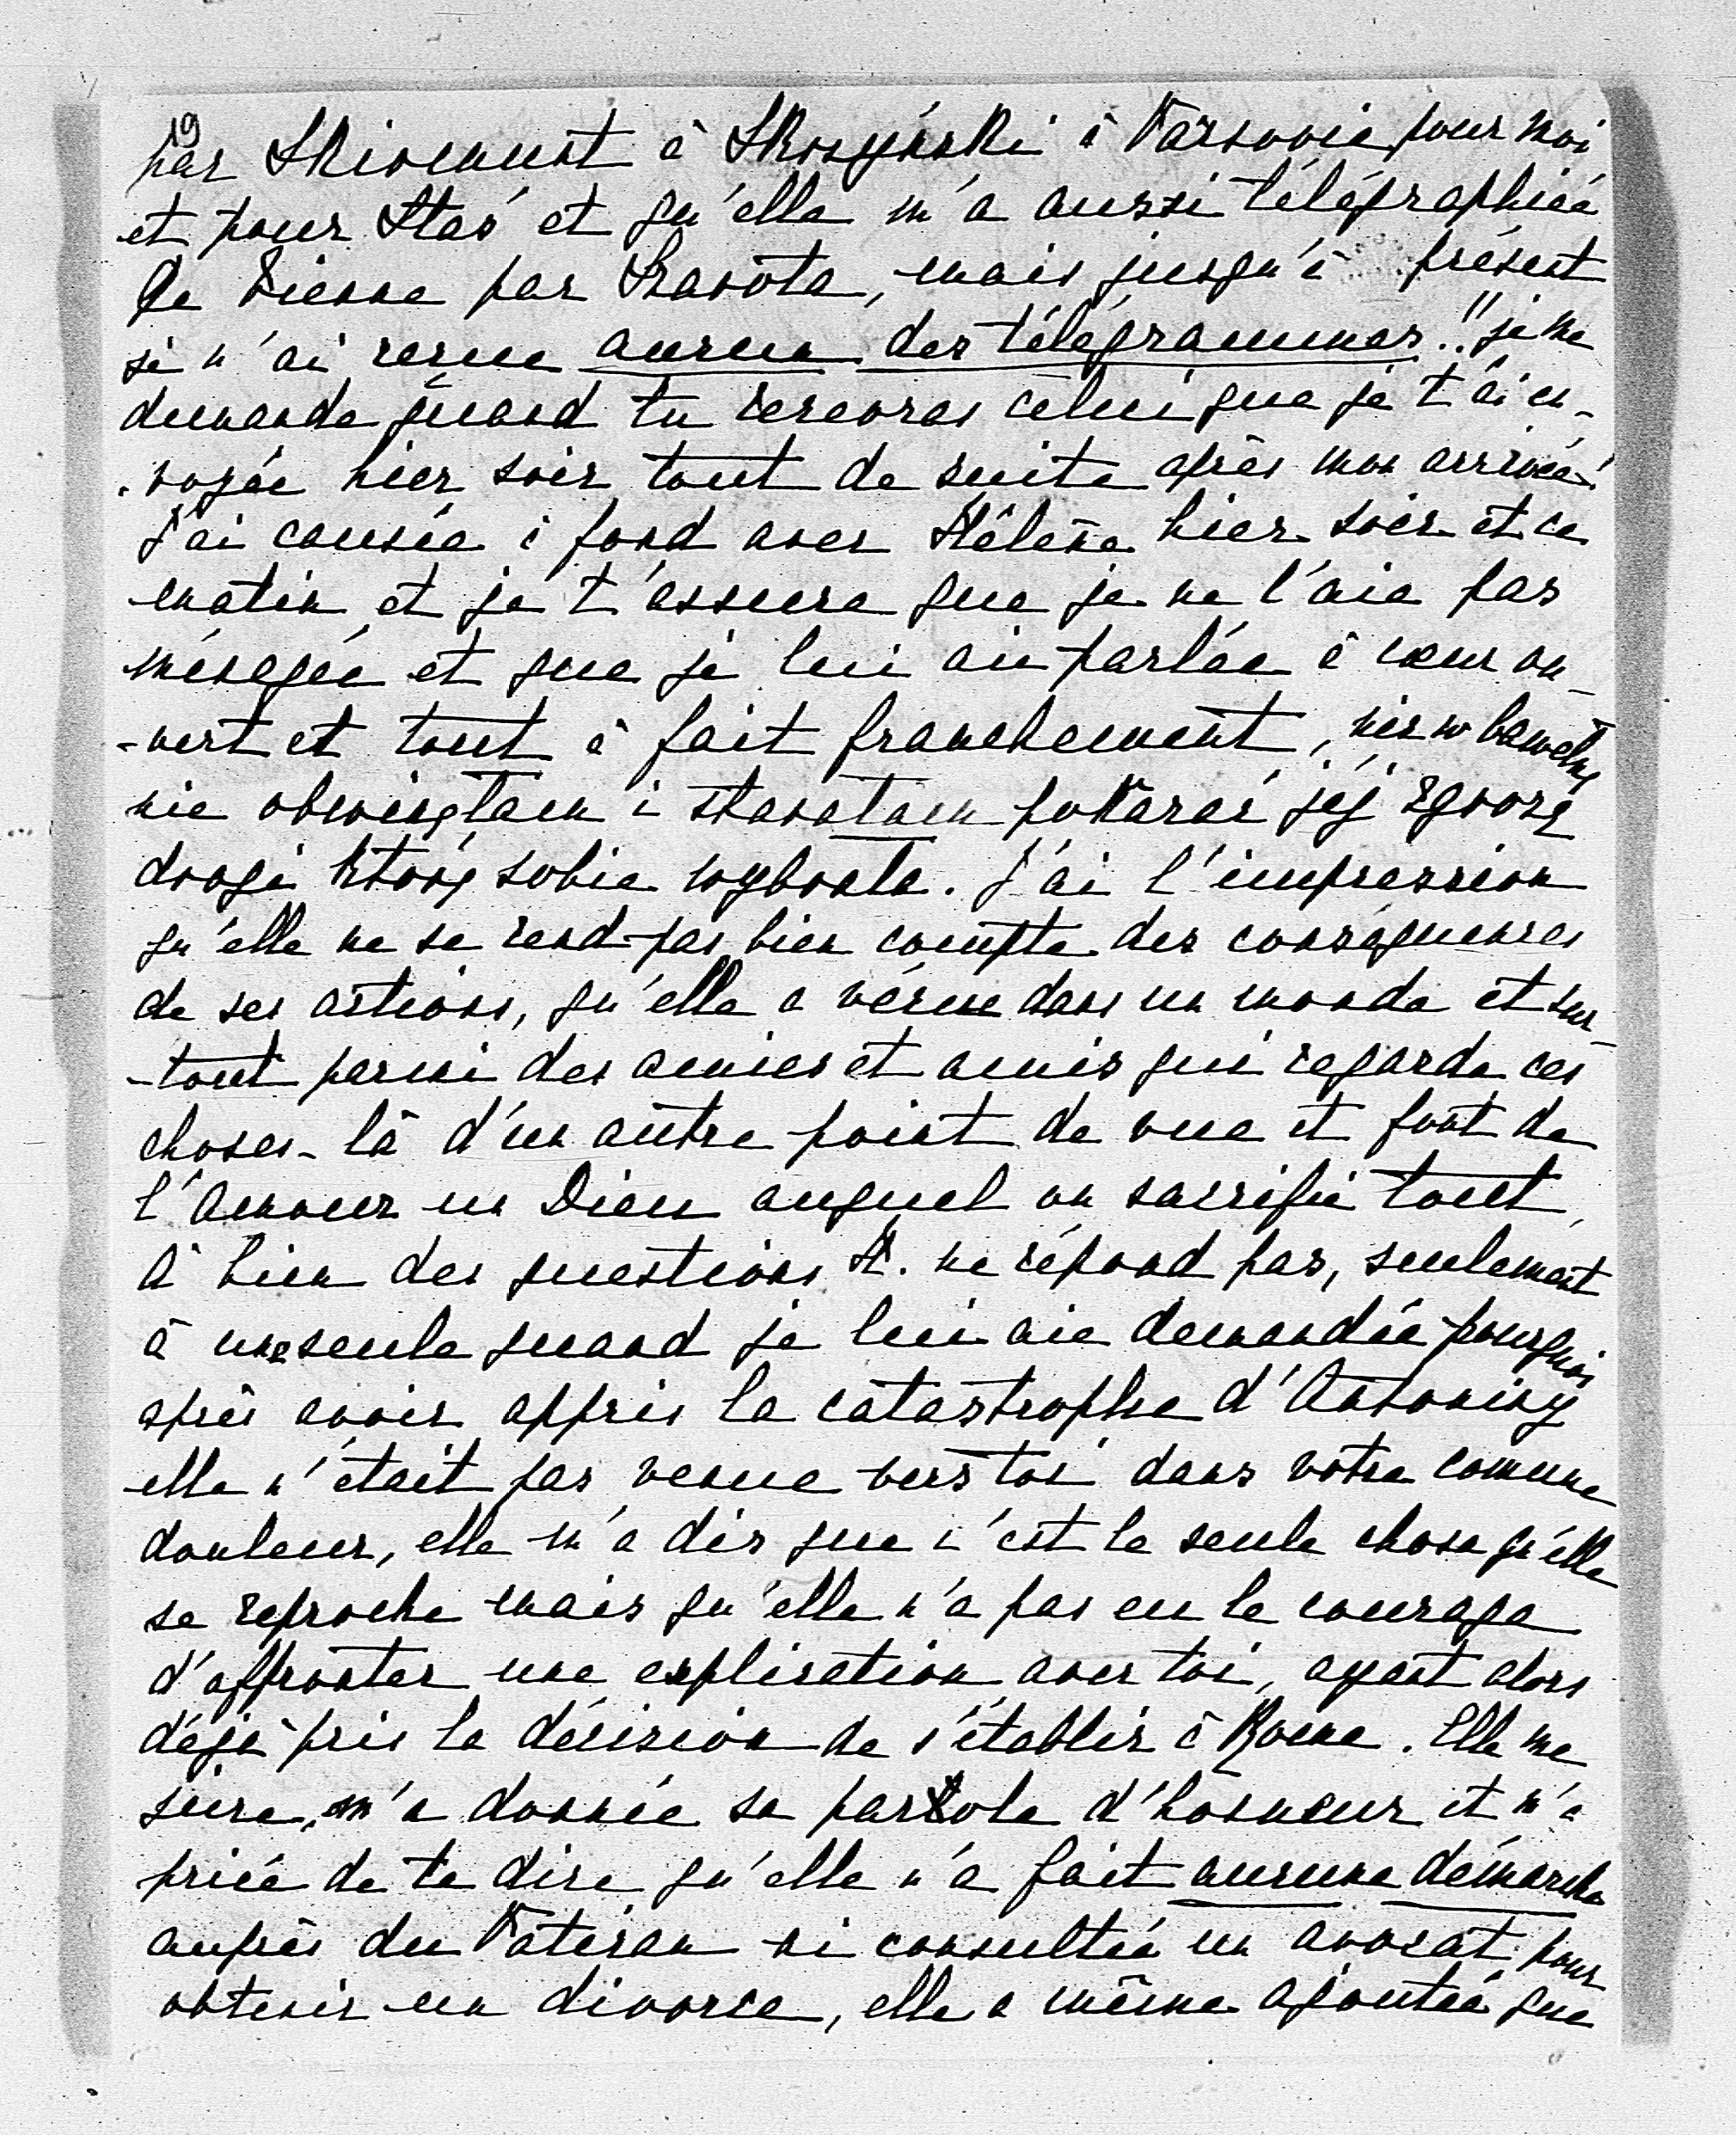 19
par Skirmunt à Skrzyński à Varsovie pour moi
et pour Staś et qu'elle m'a aussi télégraphiée
de Vienne par Skarota, mais jusqu'à présent
je n'ai reçue aucun des télégrammes!! je me
demande quand tu recevras celui que je t'ai en-
-voyée hier soir tout de suite après mon arrivée!
J'ai causée à fond avec Hélène hier soir et ce
matin et je t'assure que je ne l'aie pas
ménagée et que je lui ai parlée à cœur ou-
-vert et tout à fait franchement, nic w bawełnę
nie obwinęłam i starałam pokazać jéj zgrozę
drogi którą sobie wybrała. J'ai l'impression
qu'elle ne se rend pas bien compte des conséquences
de ses actions, qu'elle a vécue dans un monde et sur-
-tout parmi des amies et amis qui regarde ces
choses-là d'un autre point de vue et font de
l'Amour un Dieu auquel on sacrifie tout,
À bien des questions H. ne répond pas, seulement
à une seule quand je lui aie demandée pourquoi
après avoir appris la catastrophe d'Antoniny
elle n'était pas venue vers toi dans votre comune
douleur, elle m'a dis que c'est la seule chose qu'elle
se reproche mais qu'elle n'a pas eu le courage
d'affronter une explication avec toi, ayant alors
déjà pris la décision de s'établir à Rome. Elle me
jure, m'a donnée sa parole d'honneur et m'a
priée de te dire qu'elle n'a fait aucune démarche
auprès du Vatican ni consultée un avocat pour
obtenir un divorce, elle a même ajoutée que